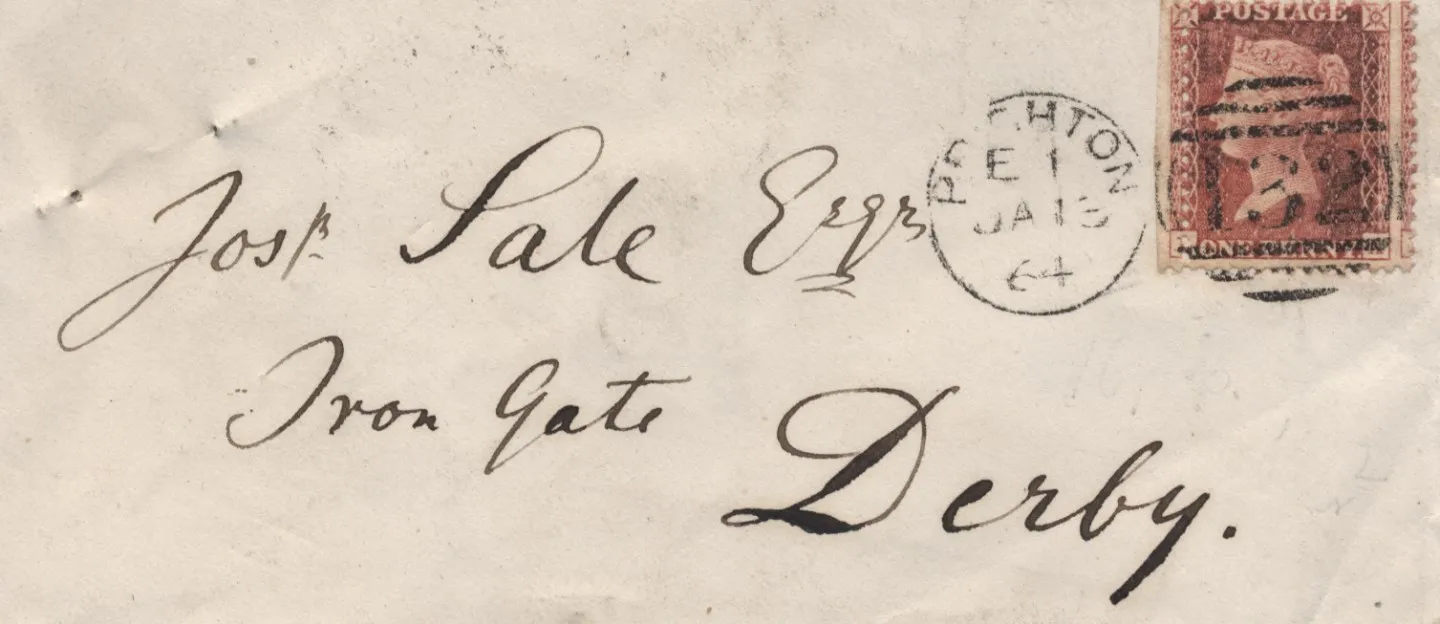 POSTAGE
132
ONE PENNY
BRIGHTON
E 1
JA 13
64
Josh Sale Esqr
Iron Gate
Derby.